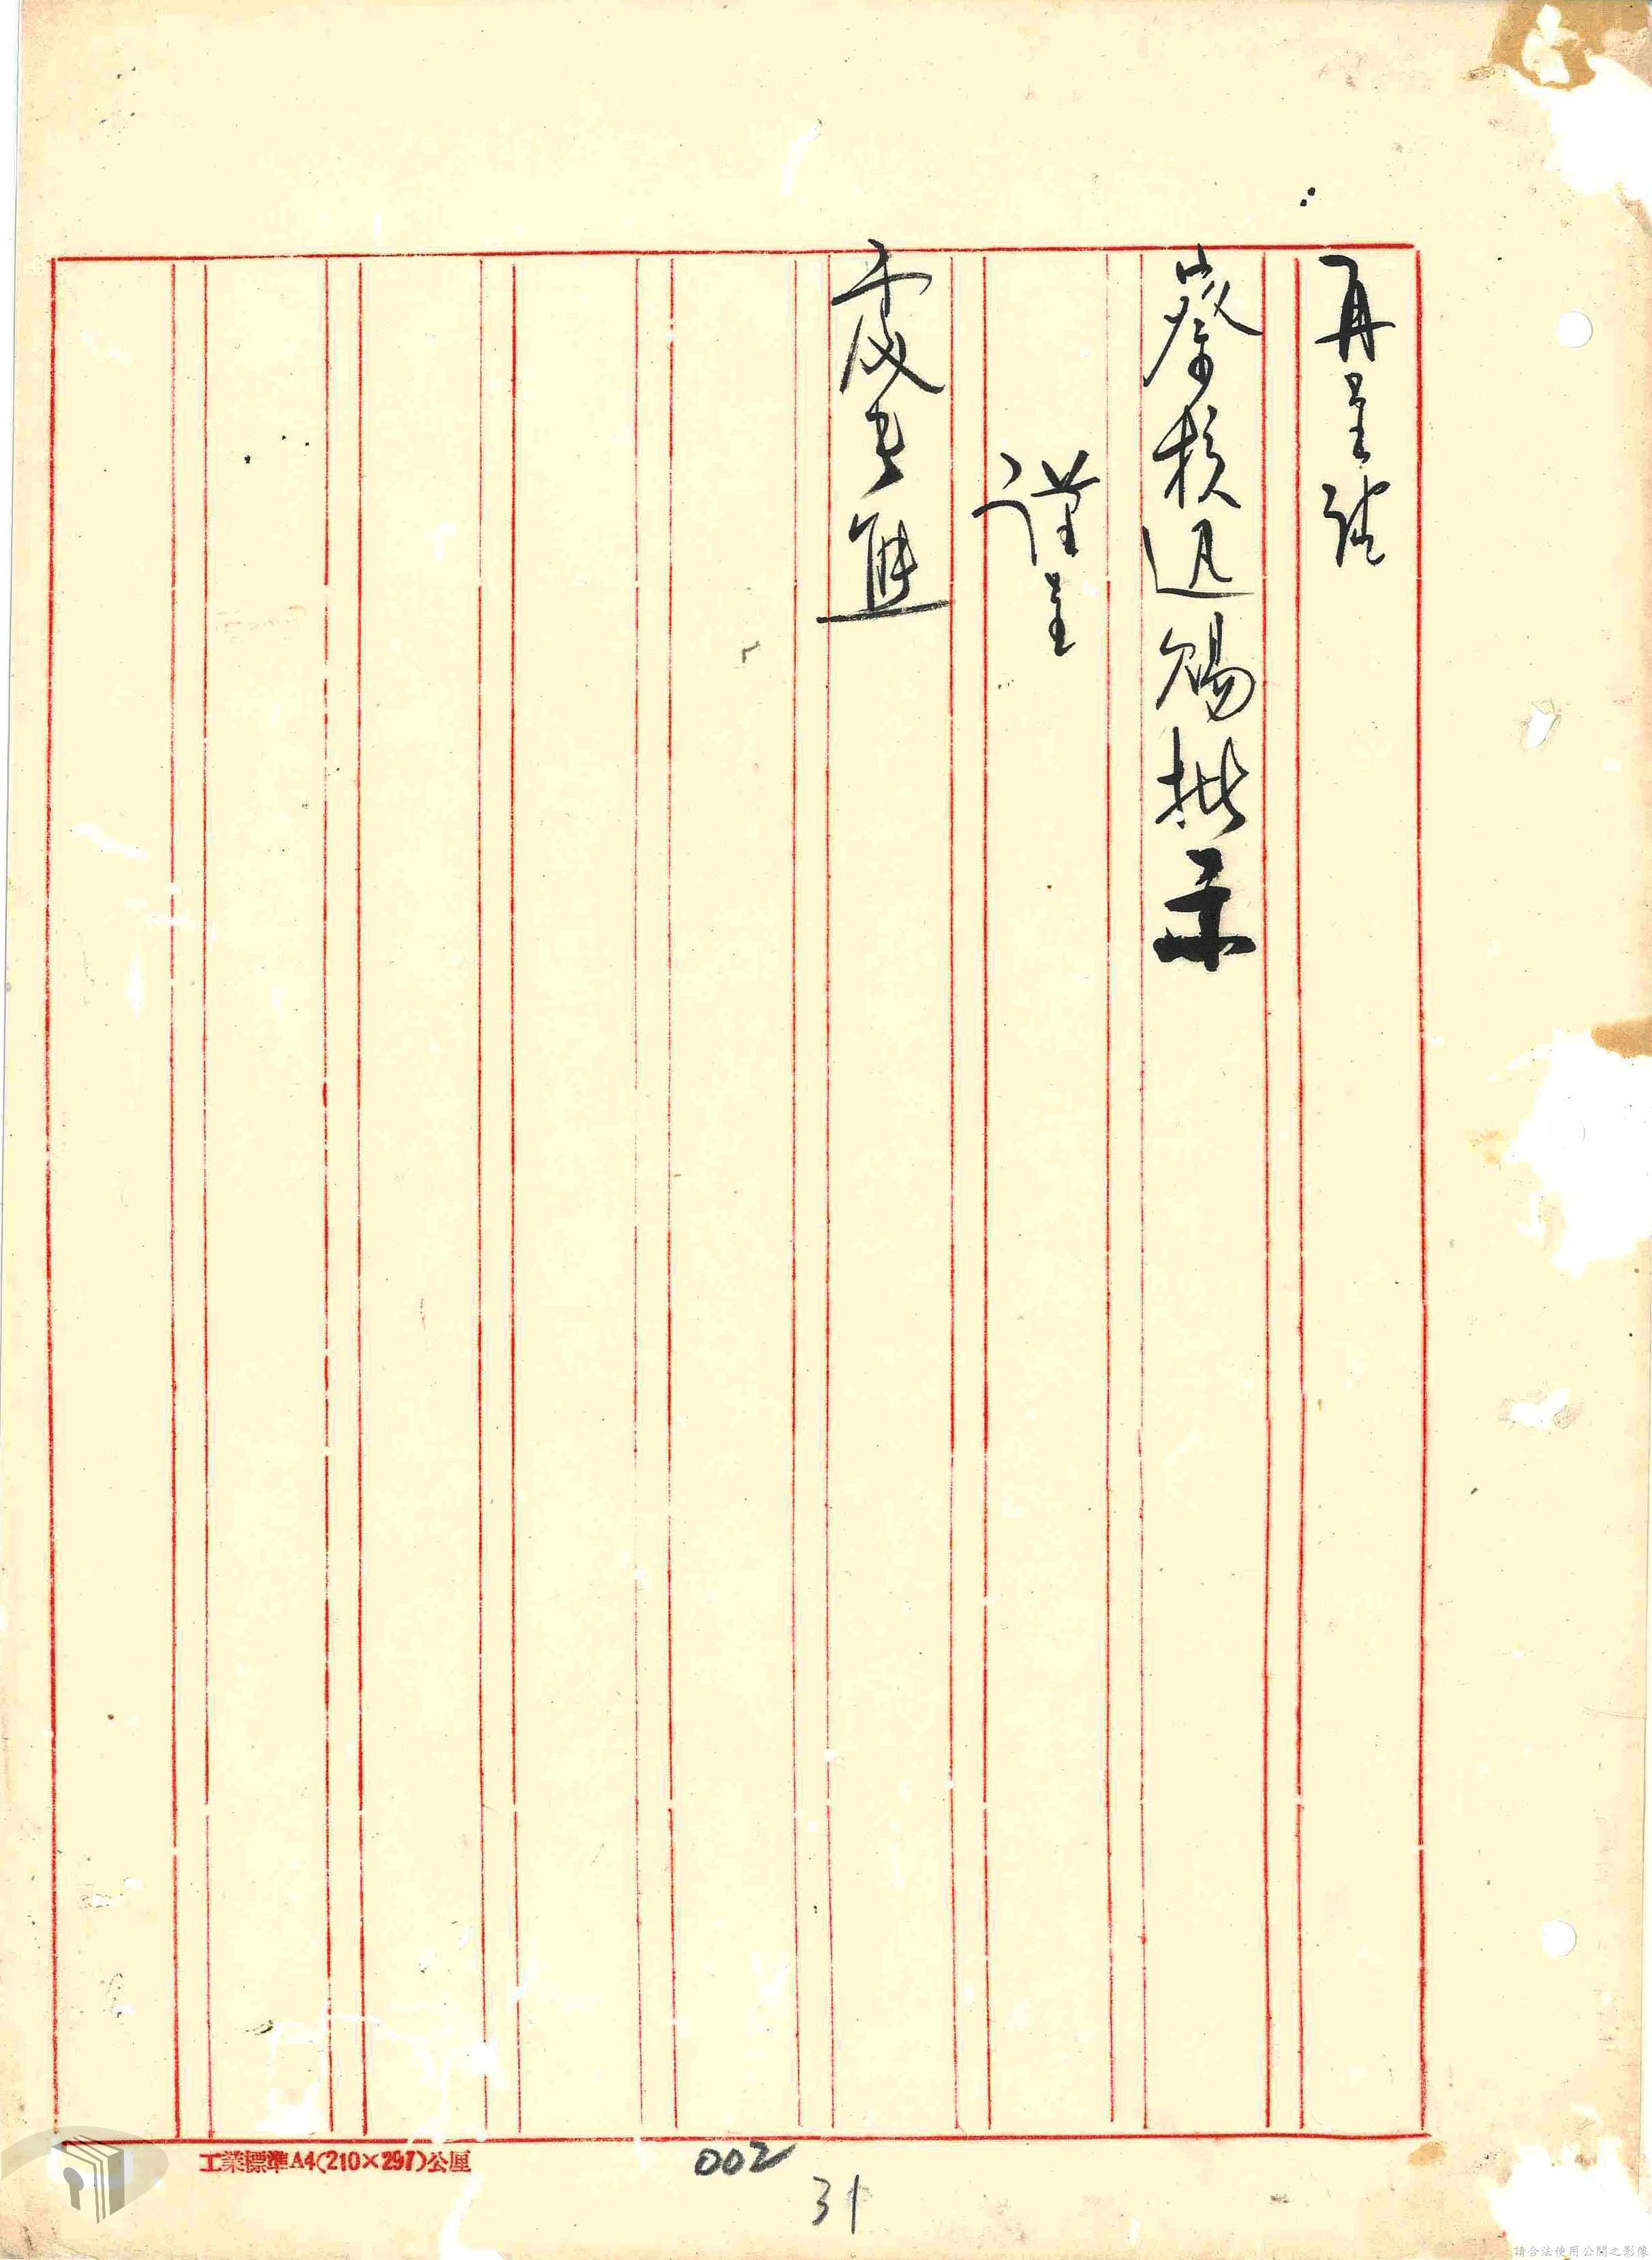 再呈請
察核迅賜批示
謹呈
處長熊
工業標準A4(210×297)公厘
002
31
請合法使用公開之影像